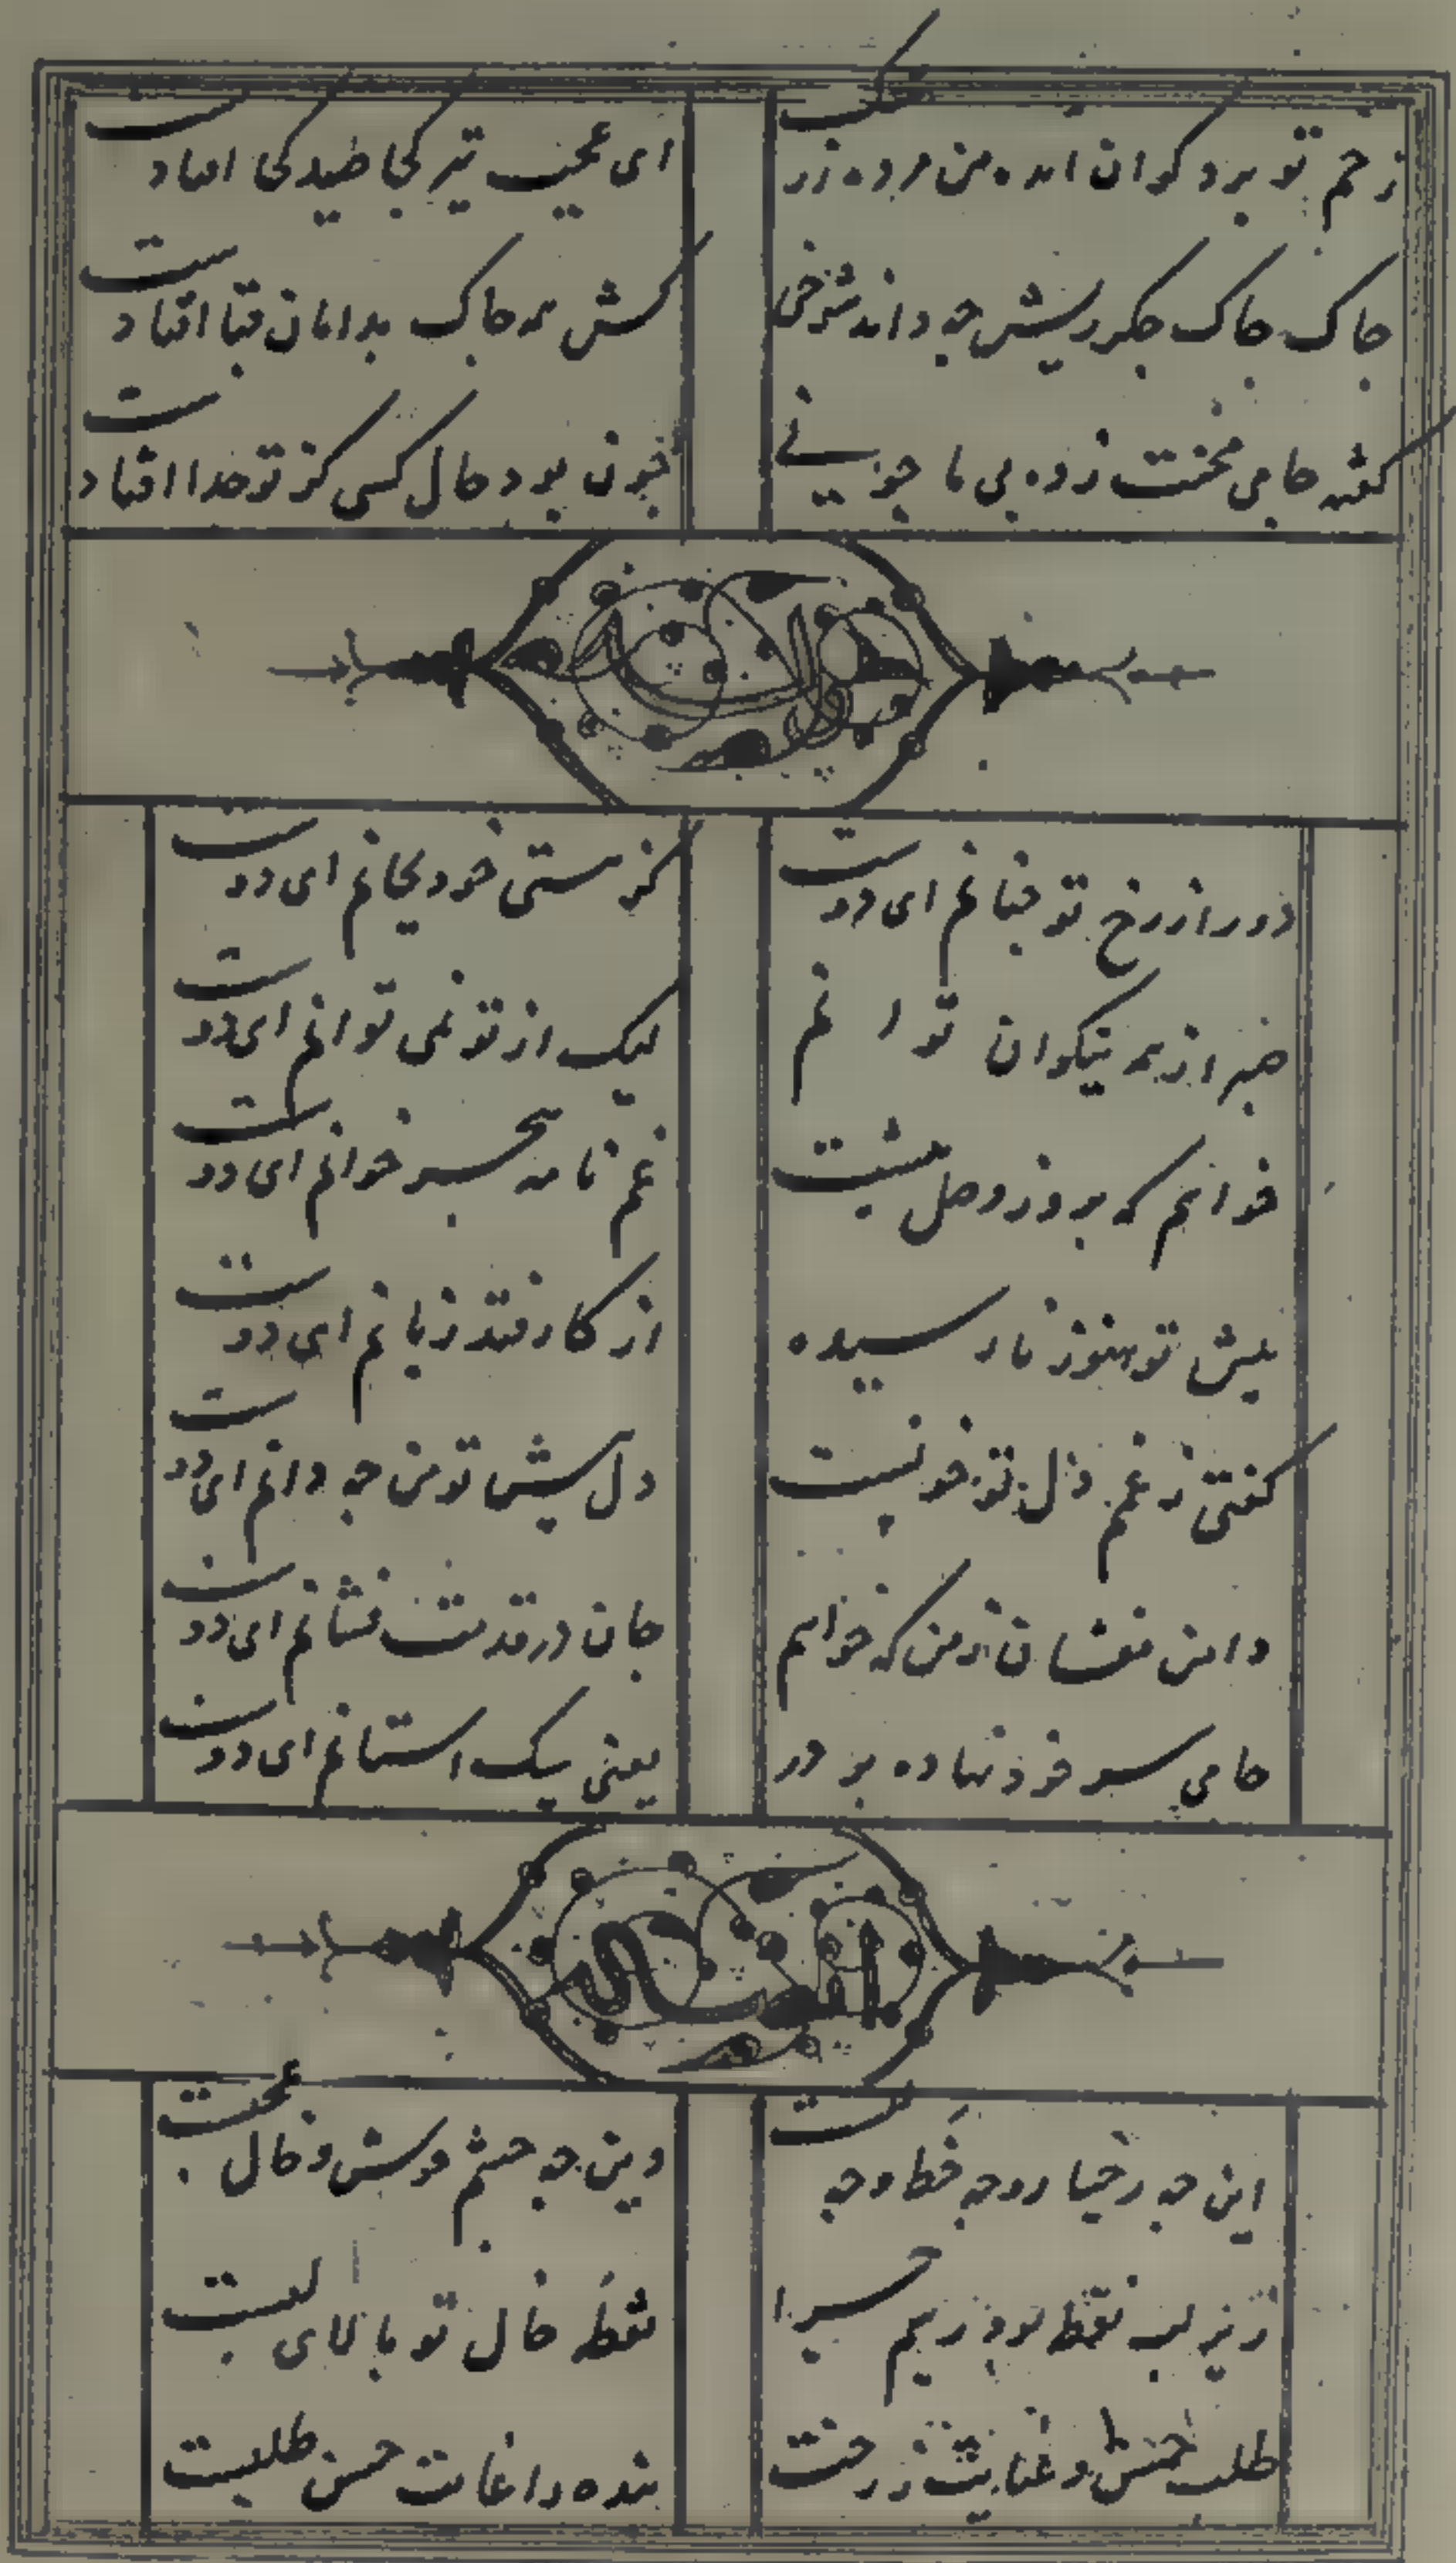 زخم تو بر دکران امده من مرده ز رشک
ای عجب تیر کجا صید کجا افتادست
چاک چاک جکر ریش چه داند شوخی
کش همه چاک بدامان قبا افتادست
کفته جامی محنت زده بی ما چونی
چون بود حال کسی کز تو جدا افتادست
دور از رخ تو چنانم ای دوست
کز هستی خود بجانم ای دوست
صبر از همه نیکوان توانم
لیک از تو نمی توانم ای دوست
خوانم که بروز وصل پیشت
غم نامه هجر خوانم ای دوست
پیش تو هنوز نارسیده
از کار فتد زبانم ای دوست
کفتی ز غم دل تو خونست
دل پیش تو من چه دانم ای دوست
دامن مفشان ز من که خواهم
جان در قدمت فشانم ای دوست
جامی سر خود نهاده بر در
یعنی سک استانم ای دوست
این چه رخسار و چه خط و چه لبست
وین چه چشم خوش و خال عجبست
زیر لب نقطه بود رسم چرا
نقطه خال تو بالای لبست
طلب و عنایت ز رخت
بنده را غایت حسن طلبست